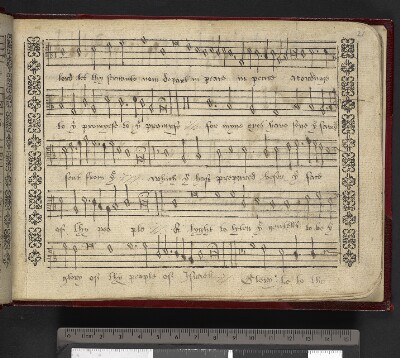 lord let thy servante now depart in peace in peace accordinge
to yͤ promyse to yͤ promyse for myne eyes have sene yͤ savi
sent from yͤ which yͤ hast prepared before yͤ face
of thy peo ple & lyght to lyten yͤ gentells to be yͤ
glory of thy people of Israell Glory to be the